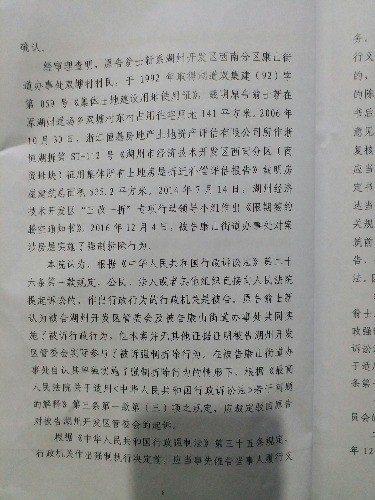 确认。
经审理查明，原告翁士新系湖州开发区西南分区康山街
道办事处双塘村村民，于1992年取得湖道双集建（92）字
第059号《集体土地建设用地使用证》，载明原告翁士新在
原湖州道场乡双塘村东村占用住宅用地141平方米。2006年
10月30日，浙江恒基房地产土地资产评估有限公司所作浙
恒湖拆第S7-112号《湖州市经济技术开发区西南分区（南
片地块）征用集体所有土地房屋拆迁补偿评估报告》载明房
屋建筑总面积525.2平方米。2014年5月14日，湖州经济
技术开发区"三改一拆"专项行动领导小组作出《限期签约
腾空通知书》。2016年12月4日，被告康山街道办事处对案
涉房屋实施了强制拆除行为。
本院认为，根据《中华人民共和国行政诉讼法》第二十
六条第一款规定，公民、法人或者其他组织直接向人民法院
提起诉讼的，作出行政行为的行政机关是被告。原告翁士新
认为被告湖州开发区管委会及被告康山街道办事处共同实
施了被诉行政行为，但未提供其他证据证明被告湖州开发
区管委会实际参与了被诉强制拆除行为，在被告康山街道办
事处自认其单独实施了强制拆除行为的情形下，根据《最高
人民法院关于适用<中华人民共和国行政诉讼法>若干问题
的解释》第三条第一款第（三）项之规定，应裁定驳回原告
对被告湖州开发区管委会的起诉。
根据《中华人民共和国行政强制法》第三十五条规定，
行政机关作出强制执行决定前，应当事先催告当事人履行义